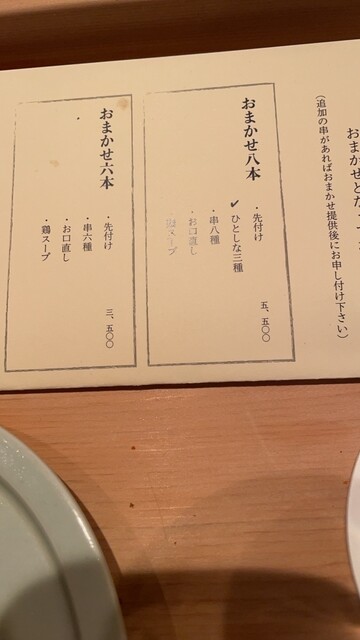 おまかせとな
(追加の串があればおまかせ提供後にお申し付け下さい)
おまかせ八本
・先付け
✓ひとしな三種
・串八種
・お口直し
・鶏スープ
五、五〇〇
おまかせ六本
・先付け
・串六種
・お口直し
・鶏スープ
三、五〇〇